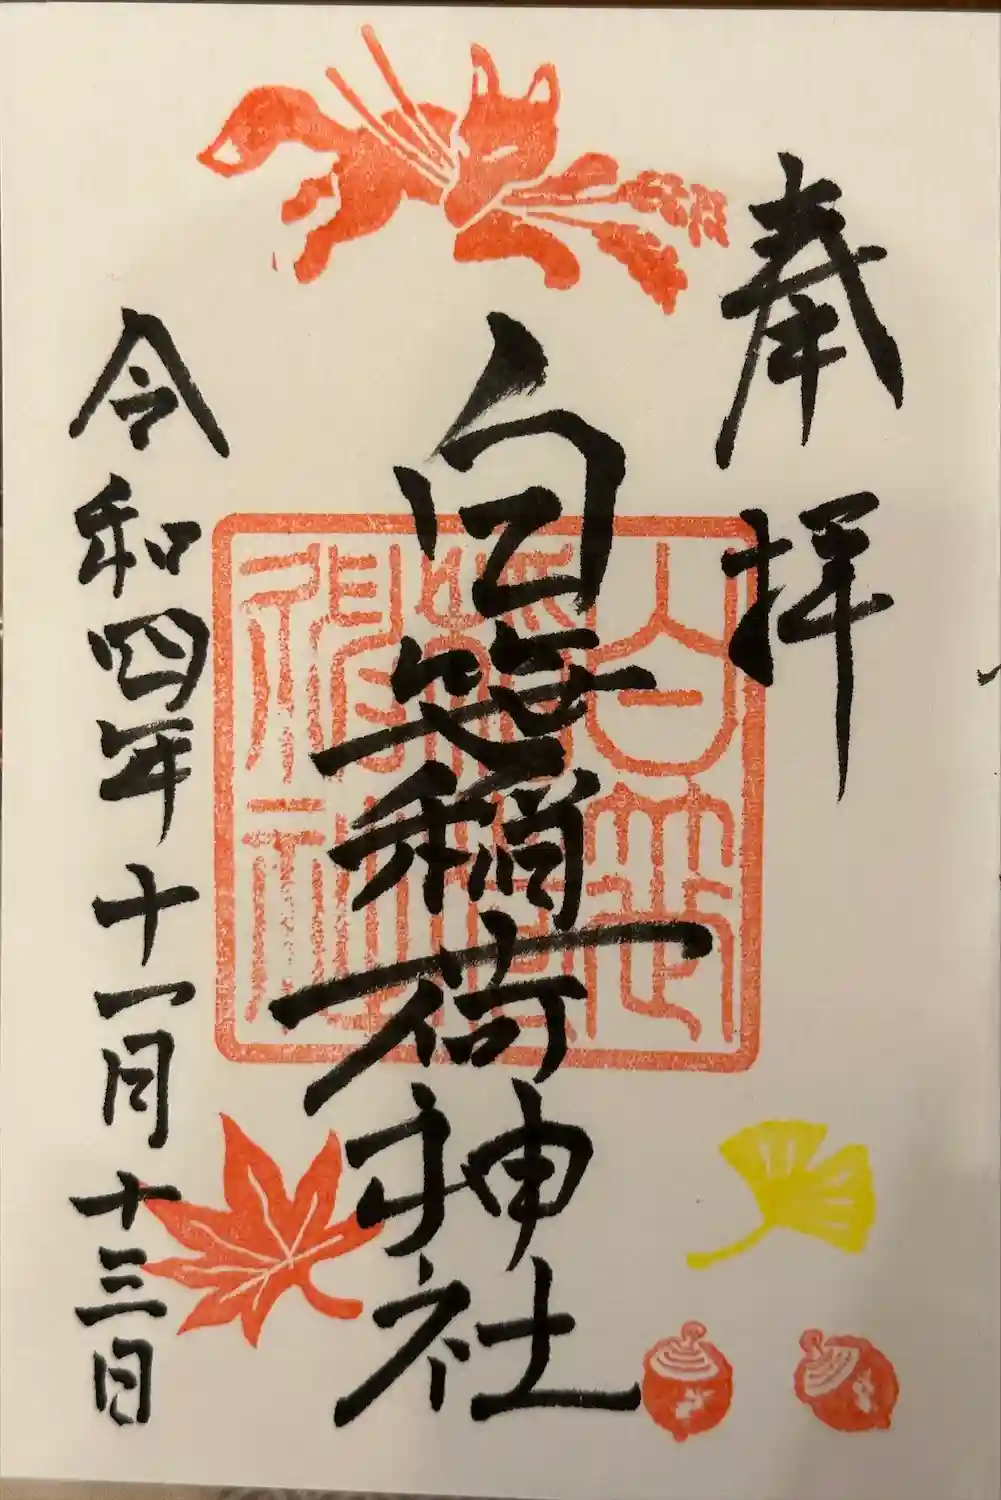 奉拝
白笹稲荷神社
令和四年十一月十三日
白笹
神社